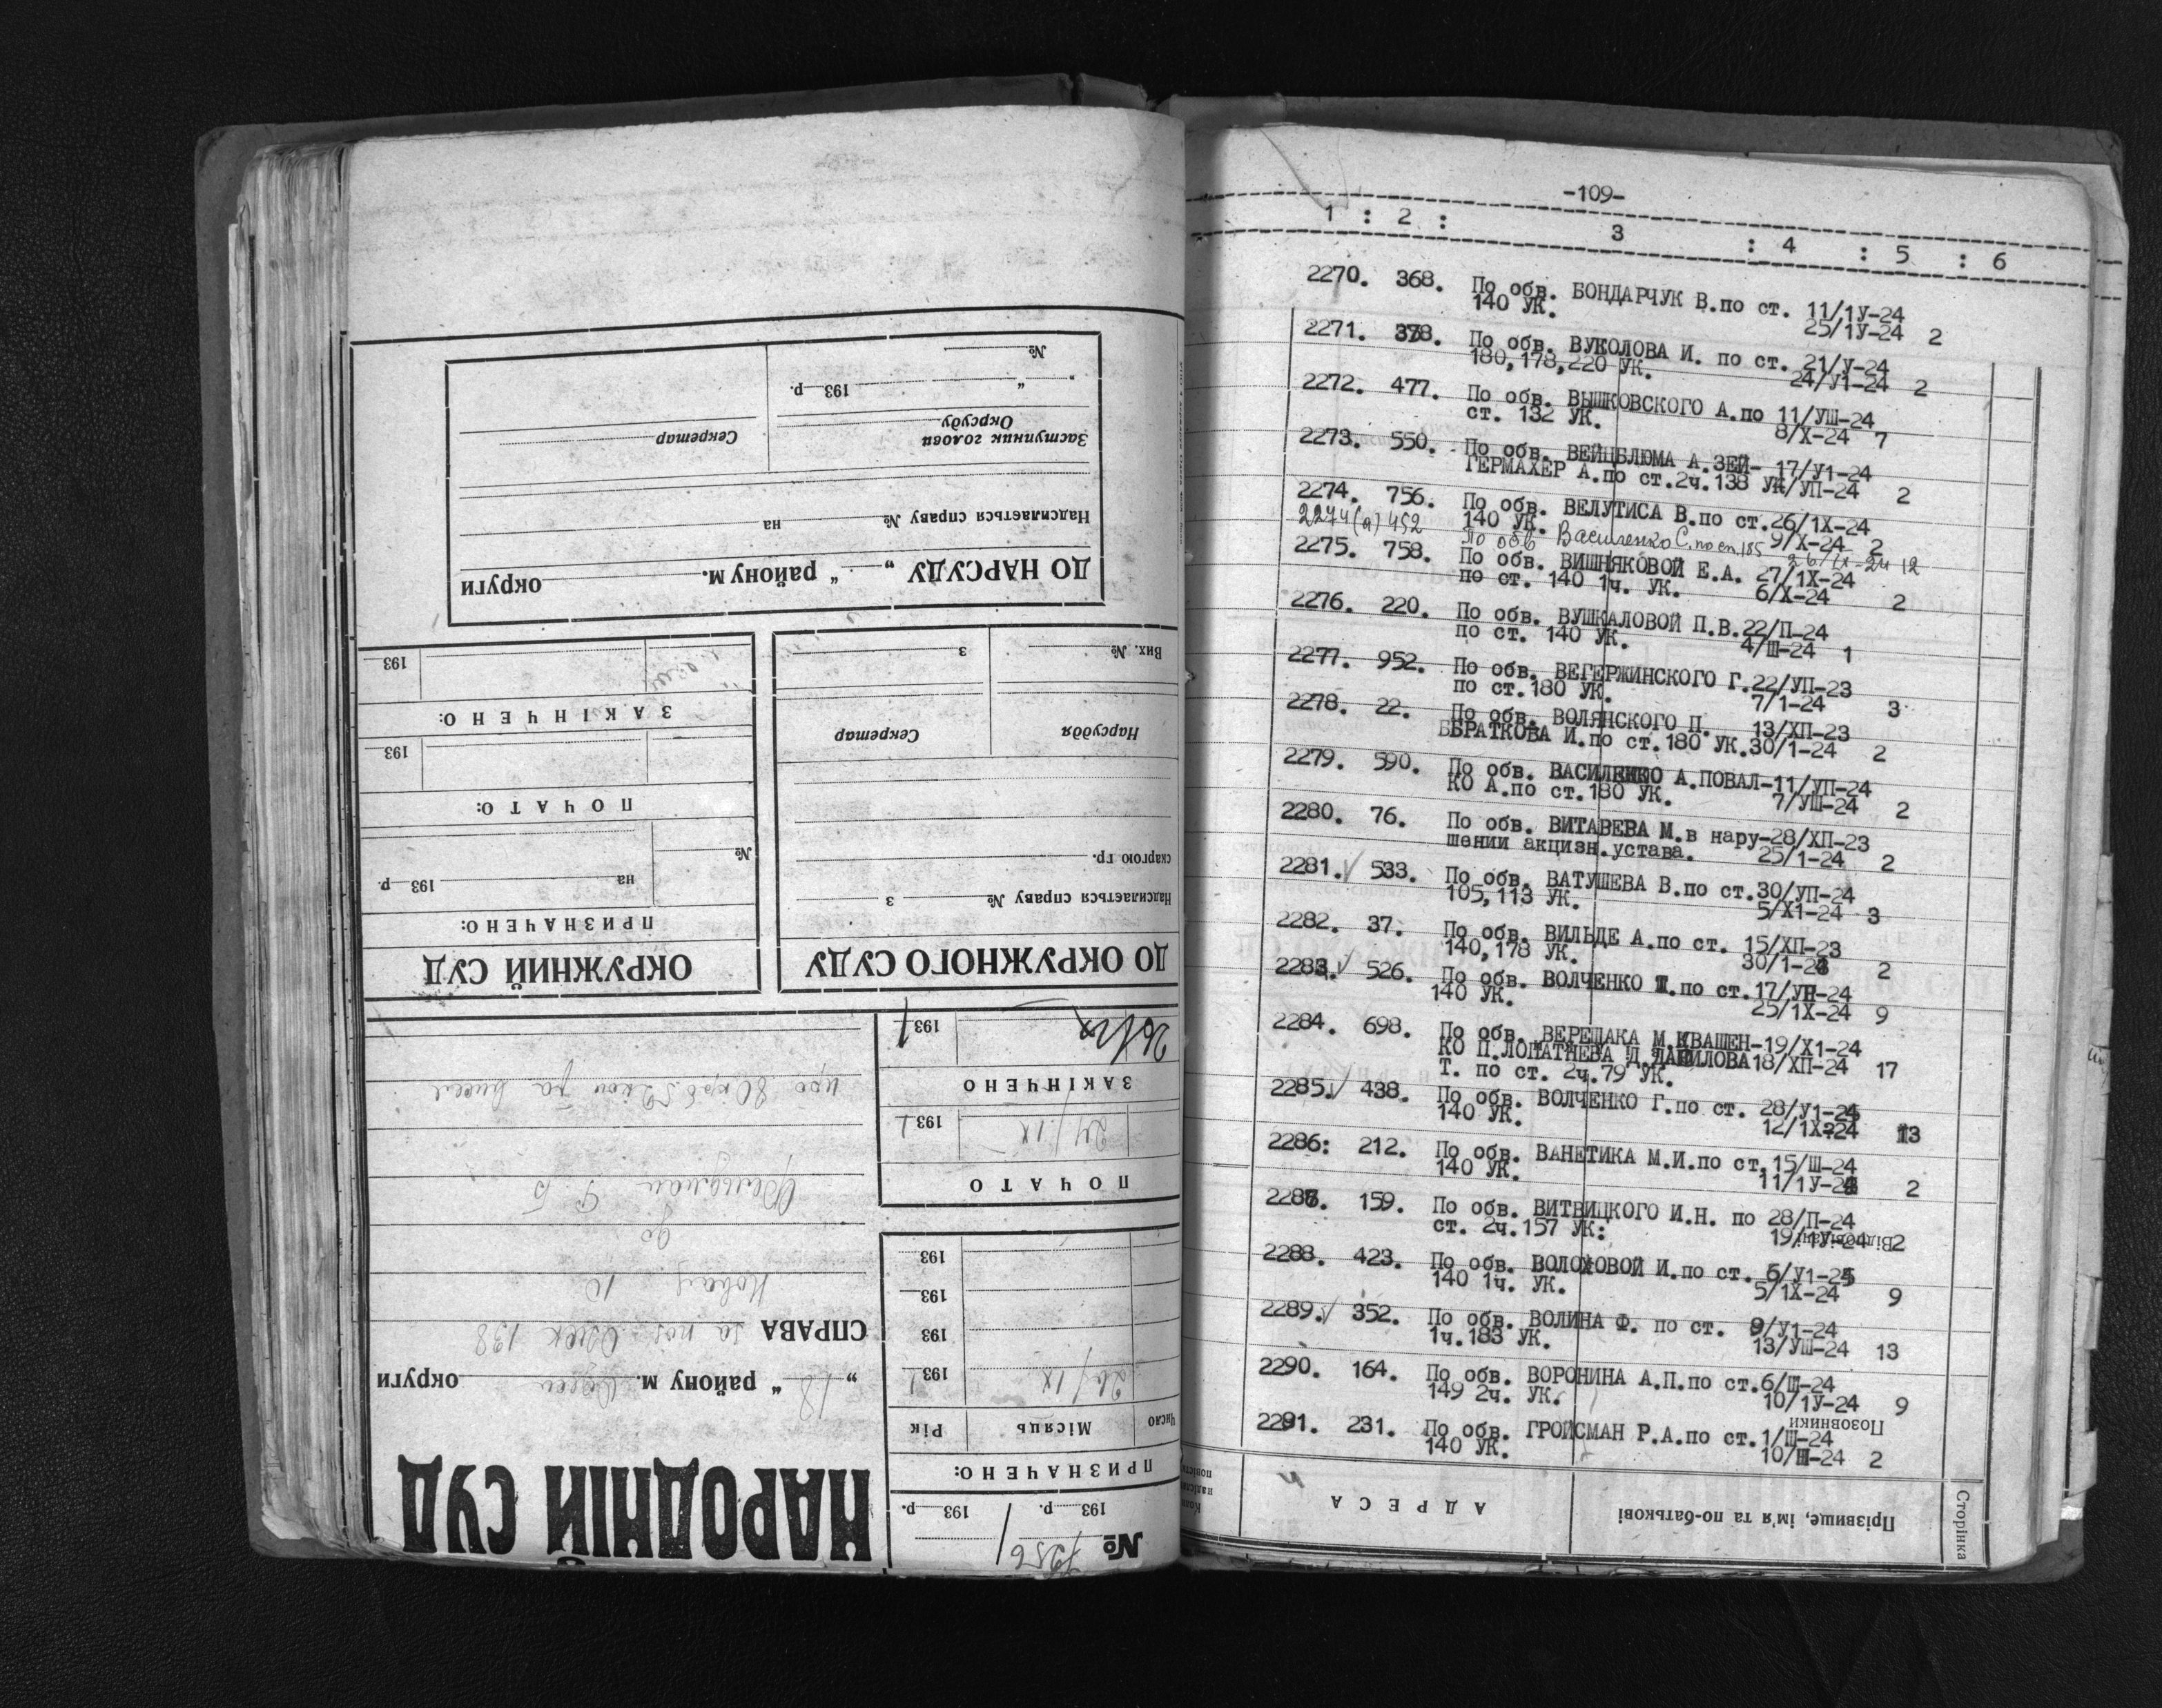 -109-
1 : 2 : 3 : 4 : 5 : 6
2270. 368. По обв. БОНДАРЧУК В.по ст. 11/1У-24
140 УК. 25/1У-24 2
2271. 378. По обв. ВУКОЛОВА И. по ст. 21/У-24
180,178,220 УК. 24/У1-24 2
2272. 477. По обв. ВЫШКОВСКОГО А.по 11/УШ-24
ст. 132 УК. 8/Х-24 7
2273. 550. По обв. ВЕЙЦБЛЮМА А.ЗЕЙ- 17/У1-24
ГЕРМАХЕР А.по ст.2ч.138 УК/УП-24 2
2274. 756. По обв. ВЕЛУТИСА В.по ст.26/1Х-24
140 УК. 9/Х-24 2
2274(а) 452 По обв Василенко С. по ст. 185 26/IX-24 12
2275. 758. По обв. ВИШНЯКОВОЙ Е.А. 27/1Х-24
по ст. 140 1ч. УК. 6/Х-24 2
2276. 220. По обв. ВУШКАЛОВОЙ П.В.22/П-24
по ст. 140 УК. 4/Ш-24 1
2277. 952. По обв. ВЕГЕРЖИНСКОГО Г.22/УП-23
по ст.180 УК. 7/1-24 3
2278. 22. По обв. ВОЛЯНСКОГО П. 13/ХП-23
БРАТКОВА И.по ст.180 УК.30/1-24 2
2279. 590. По обв. ВАСИЛЕНКО А.ПОВАЛ-11/УП-24
КО А.по ст.180 УК. 7/УШ-24 2
2280. 76. По обв. ВИТАВЕВА М.в нару-28/ХП-23
шении акцизн.устава. 25/1-24 2
2281.√ 533. По обв. ВАТУШЕВА В.по ст.30/УП-24
105,113 УК. 5/Х1-24 3
2282. 37. По обв. ВИЛЬДЕ А.по ст. 15/ХП-23
140,178 УК. 30/1-24 2
2283.√ 526. По обв. ВОЛЧЕНКО по ст.17/УП-24
140 УК. 25/1Х-24 9
2284. 698. По обв. ВЕРЕЩАКА М.КВАШЕН-19/Х1-24
КО П.ЛОПАТНЕВА Д.ДАНИЛОВА18/ХП-24 17
Т. по ст. 2ч.79 УК.
2285.√ 438. По обв. ВОЛЧЕНКО Г.по ст. 28/У1-24
140 УК. 12/1Х-24 13
2286: 212. По обв. ВАНЕТИКА М.И.по ст.15/Ш-24
140 УК. 11/1У-24 2
2287. 159. По обв. ВИТВИЦКОГО И.Н. по 28/П-24
ст. 2ч.157 УК: 19/1У-24 2
Відповідачі
2288. 423. По обв. ВОЛОХОВОЙ И.по ст. 6/У1-24
140 1ч. УК. 5/1Х-24 9
2289.√ 352. По обв. ВОЛИНА Ф. по ст. 9/У1-24
1ч.183 УК. 13/УШ-24 13
2290. 164. По обв. ВОРОНИНА А.П.по ст.6/Ш-24
149 2ч. УК. 10/1У-24 9
Позовники
2291. 231. По обв. ГРОЙСМАН Р.А.по ст.1/Ш-24
140 УК. 10/Ш-24 2
АДРЕСА
Прізвище, ім'я та по-батькові
Сторінка
№ 1256
193 р. 193 р.
ПРИЗНАЧЕНО:
Число Місяць Рік
26 IX 193
193
193
193
ПОЧАТО
24 IX 193
ЗАКІНЧЕНО
26/IX 193
НАРОДНІЙ СУД
„18“ району м. округи
СПРАВА за поз. 138
до
ДО ОКРУЖНОГО СУДУ
Надсилається справу № з
скаргою гр.
Нарсуддя Секретар
Вих. № з
ОКРУЖНИЙ СУД
ПРИЗНАЧЕНО:
на 193 р.
№
ПОЧАТО:
193
ЗАКІНЧЕНО:
193
ДО НАРСУДУ „ “ району м. округи
Надсилається справу № на
Заступник голови Окрсуду Секретар
„ “ 193 р.
№